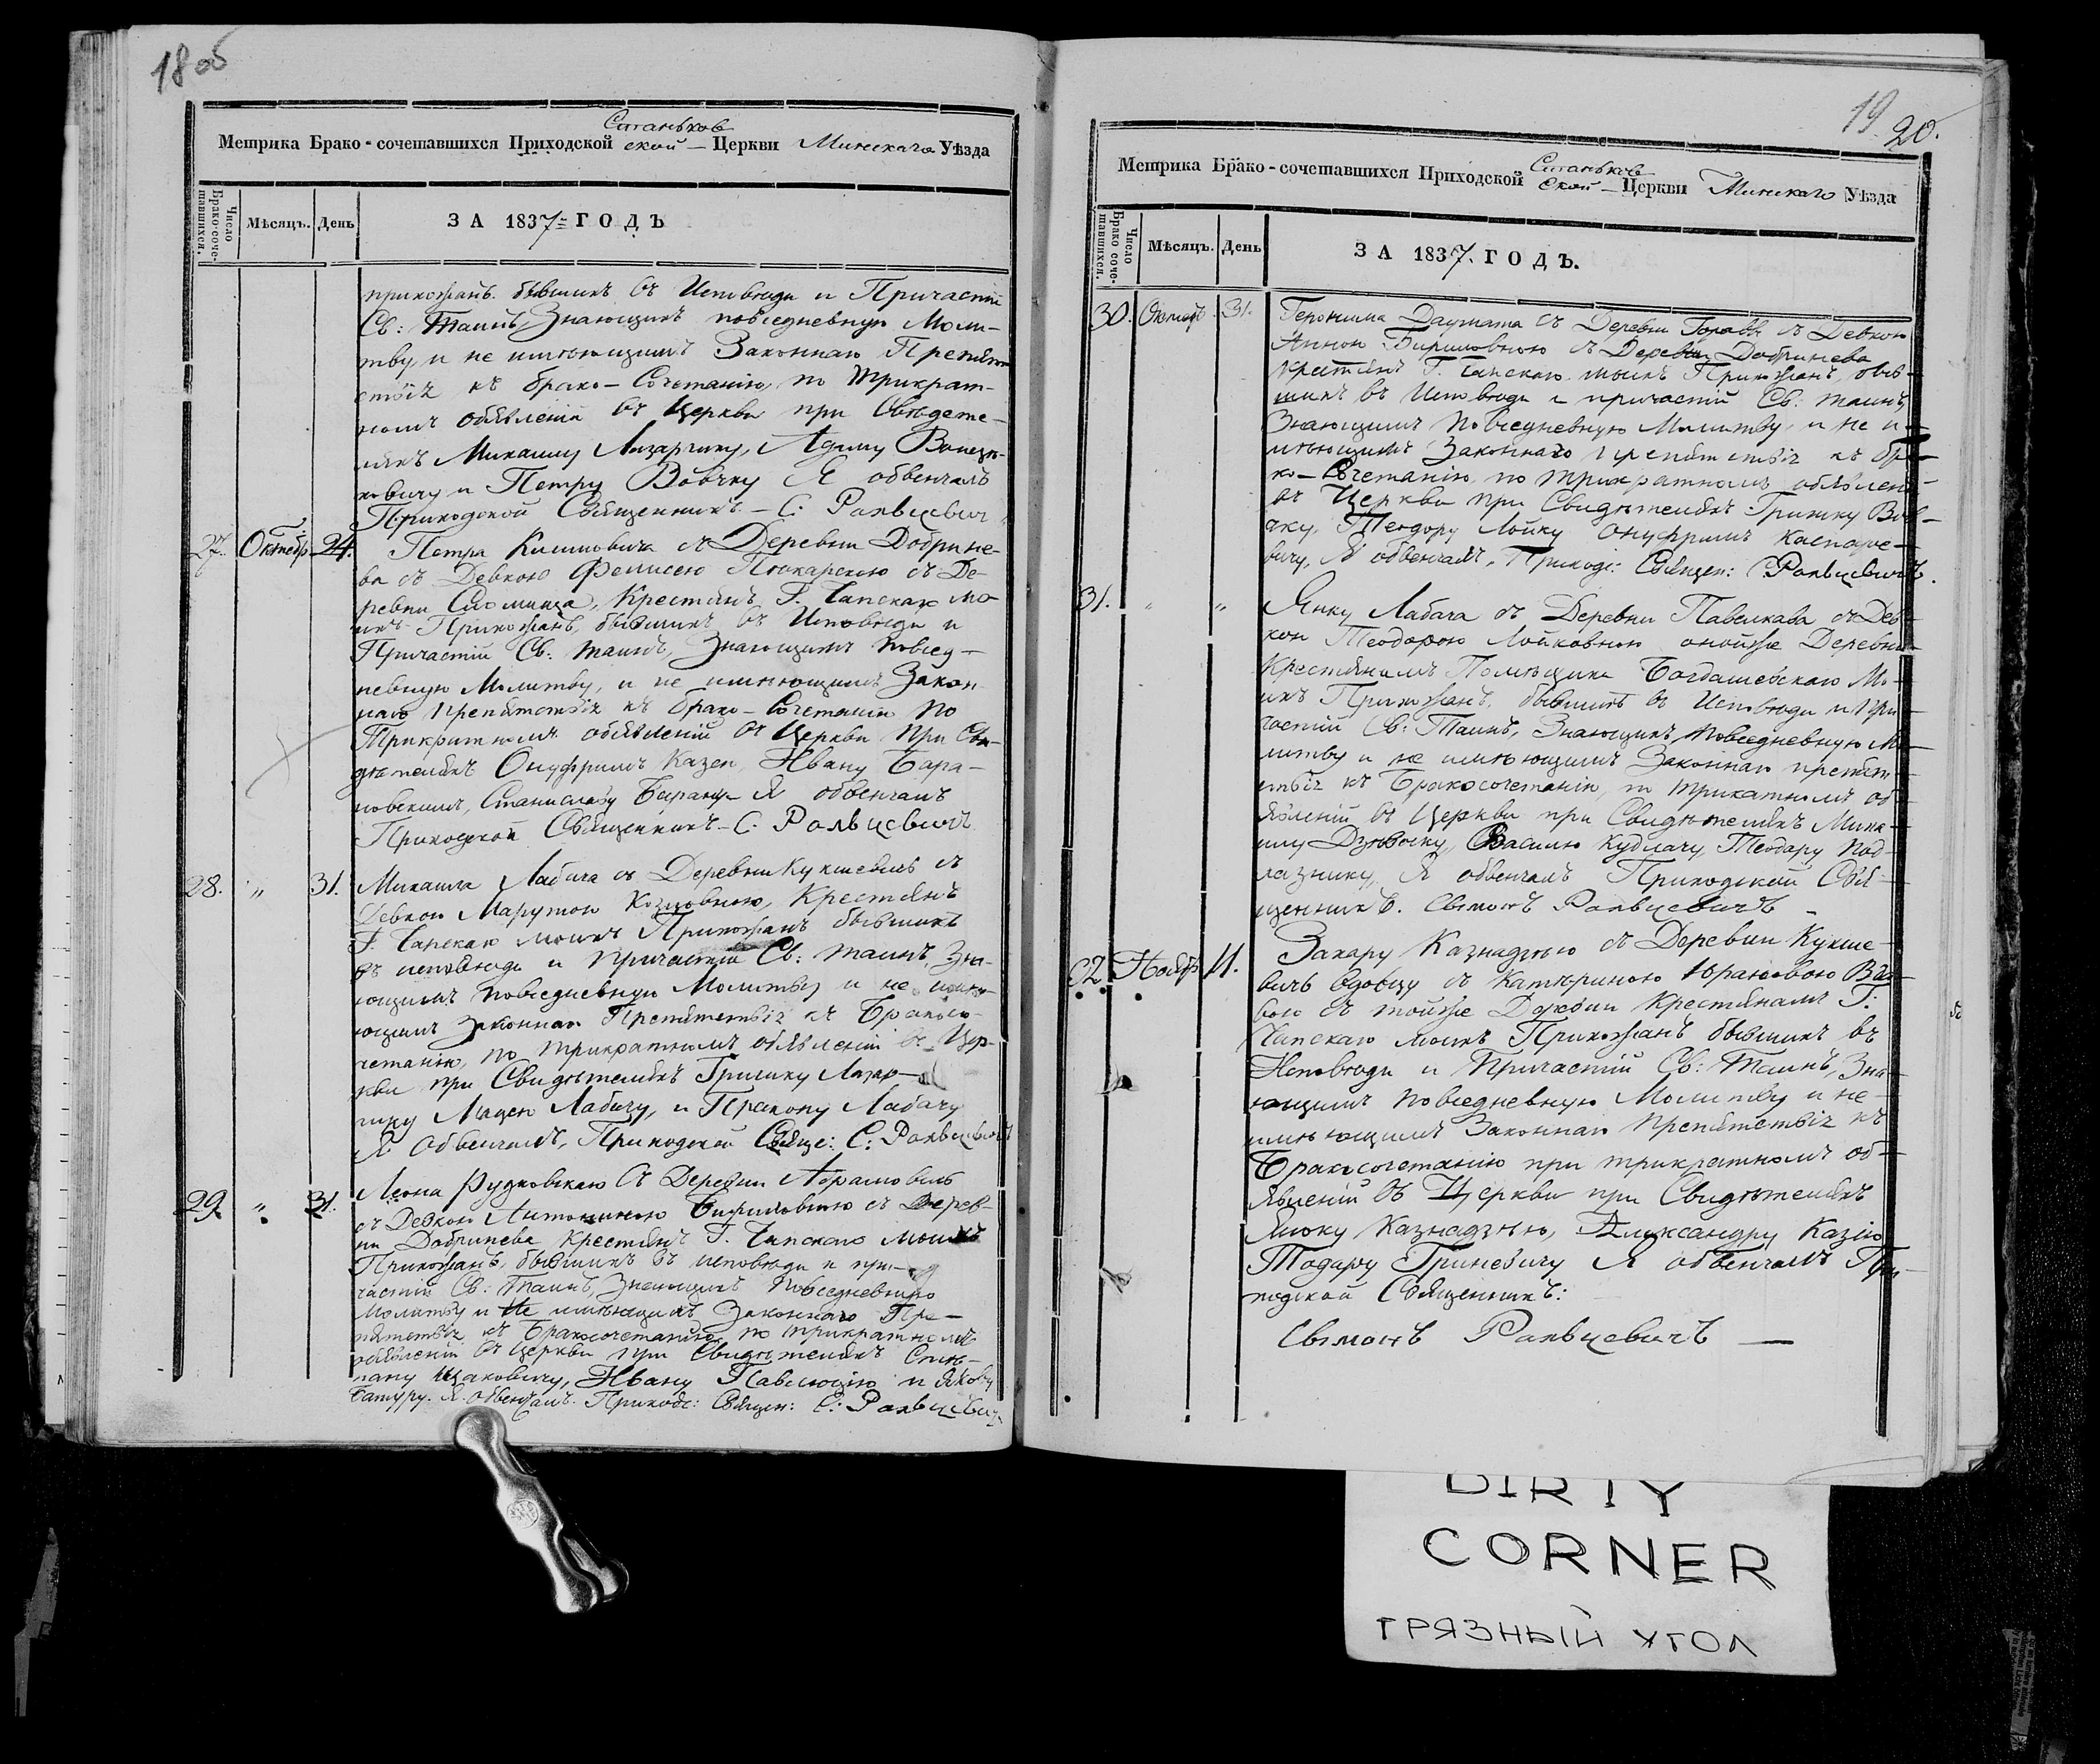 18 об
Станьков
Метрика Брако-сочетавшихся Приходской ской — Церкви Минскаго Уѣзда
Число Брако-соче-тавшихся.
Мѣсяцъ. День
ЗА 1837= ГОДЪ
прихожанъ бывшихъ въ Исповѣди и Причастіи
Св: Таинъ, Знающихъ повседневную Моли-
тву, и не имѣющимъ Законнаго Препят
ствія къ брако-Сочетанію, по Трикрат-
номъ объявленіи въ Церкви при Свѣдете-
ляхъ Михаилу Лазарчику, Адаму
ковичу и Петру Вовчку Я обвенчалъ
Приходской Священникъ — С: Ральцевич
27. Октябр. 24. Петра Климовича съ Деревни Добрине-
ва съ Девкою Фелисею съ Де-
ревни, Крестянъ Г. Чапскаго мо
ихъ Прихожанъ, бывшихъ въ Исповѣди и
Причастіи Св: таинъ, Знающимъ Повсед-
невную Молитву, и не имѣющимъ Закон
наго препятствія къ брако-Сочетанію по
Трикратномъ объявленіи въ Церкви при Сви-
дѣтеляхъ Онуфримъ Казен, Ивану Бара-
новскимъ, Станиславу Я обвенчалъ
Приходской Священникъ — С: Ральцевичъ
28. „ 31. Михаила Лабача съ Деревни Кукшевичъ съ
Девкою Марутою Козловною, Крестянъ
Г. Чапскаго моихъ Прихожанъ бывшихъ
въ исповѣди и Причастіи Св: таинъ, Зна-
ющимъ повседневную Молитву и не имѣ-
ющимъ Законнаго Препятствія къ Бракосо-
четанію, по трикратномъ объявленіи въ Цер-
кви при Свидѣтеляхъ Гришку Лазар-
чику Мацею Лабачу, и Пракопу Лабачу
Я Обвенчалъ, Приходской Свяще: С: Ральцевичъ
29. „ 31. Леона Рудковскаго съ Деревни Абрамовичъ
съ Девкою Антониною съ Дерев-
ни Добринева Крестянъ Г. Чапскаго моихъ
Прихожанъ, бывшихъ въ исповѣди и при-
частіи Св: Таинъ, Знающихъ Повседневную
Молитву и Не имѣющихъ Законнаго Пре-
пятствія къ Бракосочетанію, по трикратномъ
объявленіи въ Церкви при Свидѣтеляхъ Сте-
пану, Ивану Павлюцію и Якову
Батуру. Я обвенчалъ. Приходс: Священ: С: Ральцевичъ
19 20.
Станьков
Метрика Брако-сочетавшихся Приходской ской — Церкви Минскаго Уѣзда
Число Брако соче-тавшихся.
Мѣсяцъ. День
ЗА 1837. ГОДЪ.
30. Октяб. 31. Геронима Даумата съ Деревни съ Девкою
Анною съ Деревни Добринева
Крестянъ Г. Чапскаго моихъ Прихожанъ, быв-
шихъ въ Исповѣди и причастіи Св: таинъ,
Знающимъ Повседневную Молитву, и не и-
мѣющимъ Законнаго препятствія къ бра-
ко-Сочетанію, по трикратномъ объявлені
въ Церкви при Свидѣтеляхъ Гришку Вов-
чку, Теодору Лойку Онуфримъ Каспаре-
вичу, Я обвенчалъ, Приходс: Священ: С: Ральцевичъ.
31. „ „ Янку Лабача съ Деревни Павелкава съ Дев
кою Теодорою Лойковною онойже Деревни
Крестяномъ Помѣщика Богдашевскаго Мо-
ихъ Прихожанъ, бывшихъ въ Исповѣди и При
частіи Св: Таинъ, Знающихъ, Повседневную Мо-
литву и не имѣющимъ Законнаго препят-
ствія къ Бракосочетанію, по трикатномъ об-
явленіи въ Церкви при Свидѣтеляхъ Миха-
илу, Василю Кудлачу, Теодару Под-
лазнику, Я обвенчалъ Приходской Свя-
щенникъ. Сѣмонъ Ральцевичъ
32. Ноябр 11. Захару Казнадѣю съ Деревни Кукше-
вичъ вдовцу съ Катериною Юраковою Вдо-
вою съ тойже Деревни Крестяномъ Г:
Чапскаго моихъ Прихожанъ бывшихъ въ
Исповѣди и Причастіи Св: Таинъ, Зна-
ющимъ Повседневную Молитву и не-
имѣющимъ Законнаго препятствія къ
Бракосочетанію при трикратномъ об-
явленіи въ Церкви при Свидѣтеляхъ
Казнадѣю, Александру Казію
Тодару Гриневичу Я обвенчалъ При-
ходской Священникъ:
Сѣмонъ Ральцевичъ —
DIRTY
CORNER
ГРЯЗНЫЙ УГОЛ